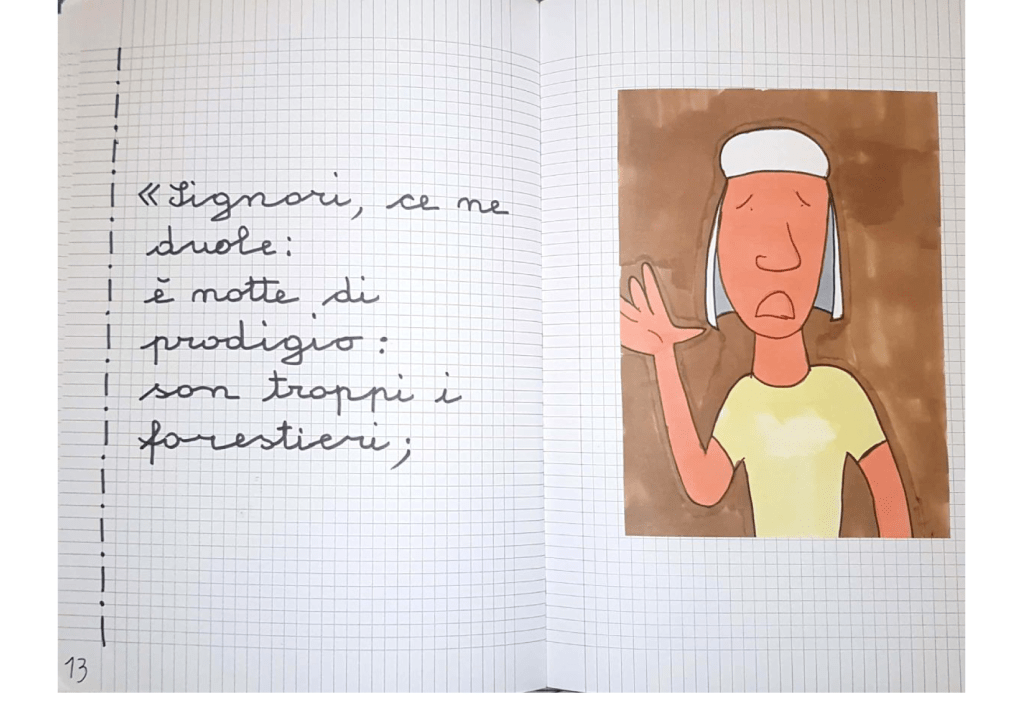 «Signori, ce ne
duole:
è notte di
prodigio:
son troppi i
forestieri;
13